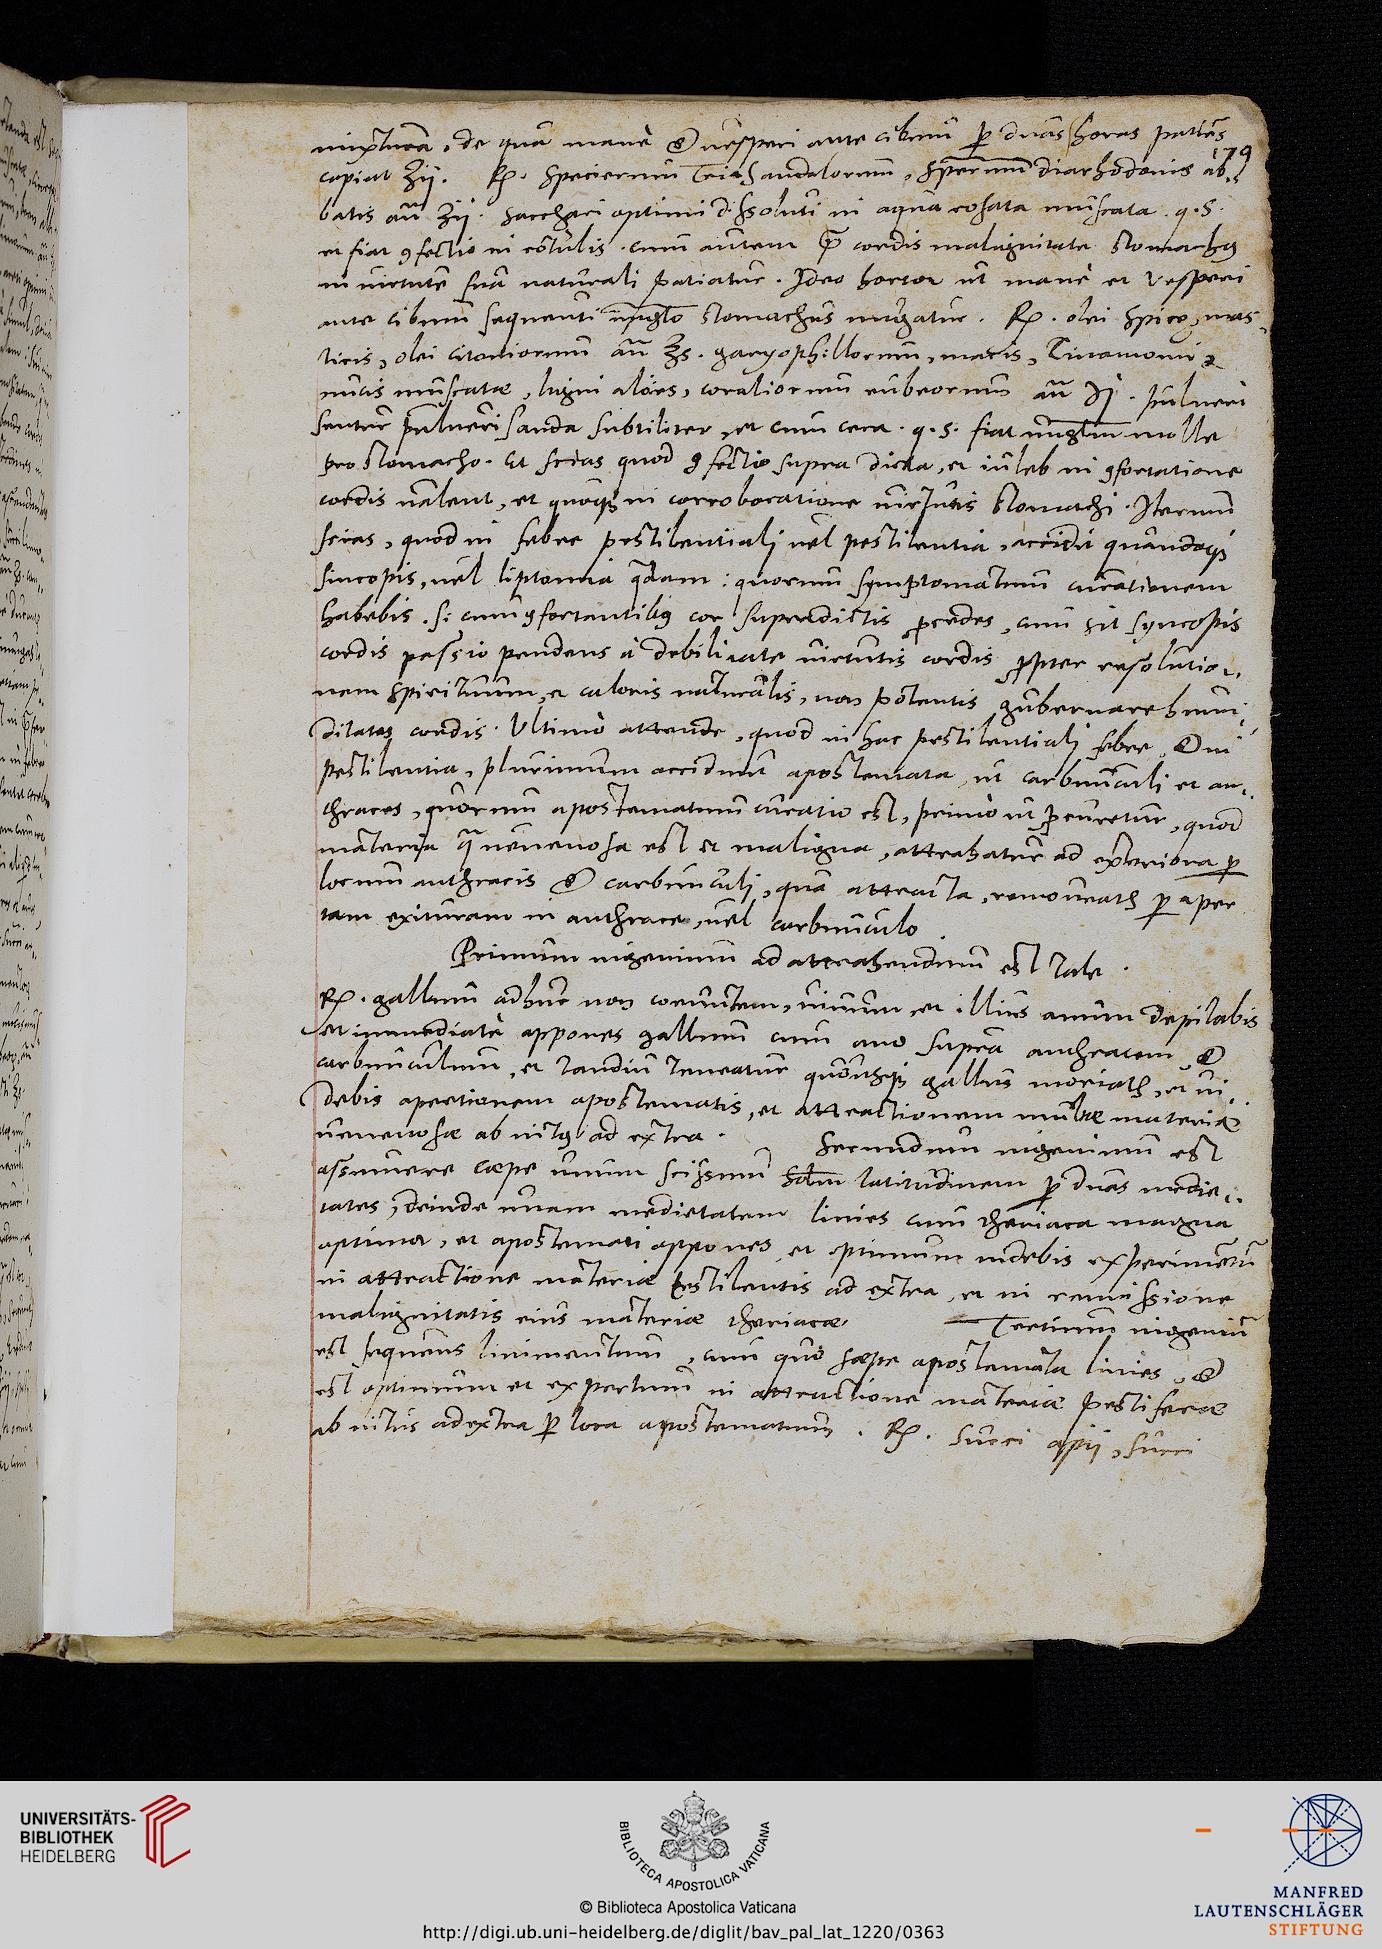 mixtura, de qua mane & uesperi ante cibum p duas horas patiēs
179
capiat ʒij. R. Specierum Triasandalorum, specierum diarhodonis ab-
batis anā ʒij. sacchari optimi dissoluti in aqua rosata muscata. q. s.
et fiat 9fectio in rotulis. cum autem prae cordis malignitate stomachus
in uirtute sua naturali patiatur. Ideo hortor ut mane et vesperi
ante cibum sequenti unguento stomachus ungatur. R. olei spicae, mas-
ticis, olei citoniorum anā ℥s. garyophillorum, macis, Cinamomi,
nucis muscatae, ligni aloes, coraliorum rubeorum anā ℈j. pulueri
sentur puluerisanda subtiliter, et cum cera. q. s. fiat unguentum molle
pro stomacho. Et scias quod 9fectio supra dicta, et iuleb in 9fortatione
cordis ualent, et quoque in corroboratione uirtutis stomachi. Iterum
scias, quod in febre pestilentiali uel pestilentia, accidit quandoque
sincopis, uel liptomia quaedam: quorum symptomatum curationem
habebis. si cum 9fortantibus cor supradictis procedes, cum sit syncopis
cordis passio pendens à debilitate uirtutis cordis propter resolutio-
nem spirituum, et caloris naturalis, non potentis gubernare humi-
ditates cordis. Ultimo attende, quod in hac pestilentiali febre, & in
pestilentia, plurimum accidunt apostemata, ut carbunculi et an-
thraces, quorum apostematum curatio est, primo ut procuretur, quod
materia quae uenenosa est et maligna, attrahatur ad exteriora p
locum anthracis & carbunculi, qua attracta, remoueatur p aper
tam exituram in anthrace, uel carbunculo
Primum ingenium ad attrahendum est tale.
R. gallum adhuc non coeuntem, uiuum, et illius anum depilabis
et immediatè appones gallum cum ano supra anthracem &
carbunculum, et tandiu teneatur quousque gallus moriatur, et ui-
debis apertionem apostematis, et attractionem multae materiae
uenenosae ab intus ad extra. Secundum ingenium est
assumere caepe unum scissum secundum latitudinem p duas medie-
tates, deinde unam medietatem linies cum theriaca magna
optima, et apostemati appones, et optimum uidebis experimentum
in attractione materiae pestilentis ad extra, et in remissione
malignitatis eius materiae theriacae. Tertium ingeniū
est sequens linimentum, cum quo saepe apostemata linies, &
est optimum et expertum in attractione materiae pestiferae
ab intus ad extra p loca apostematum. R. Succi apij, succi
UNIVERSITÄTS-
BIBLIOTHEK
HEIDELBERG
BIBLIOTECA APOSTOLICA VATICANA
© Biblioteca Apostolica Vaticana
http://digi.ub.uni-heidelberg.de/diglit/bav_pal_lat_1220/0363
MANFRED
LAUTENSCHLÄGER
STIFTUNG